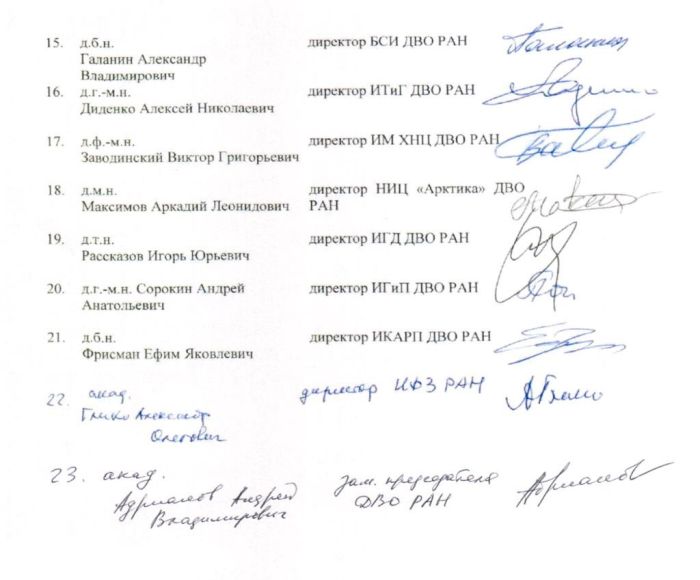 15. д.б.н. директор БСИ ДВО РАН
Галанин Александр
Владимирович
16. д.г.-м.н. директор ИТиГ ДВО РАН
Диденко Алексей Николаевич
17. д.ф.-м.н. директор ИМ ХНЦ ДВО РАН
Заводинский Виктор Григорьевич
18. д.м.н. директор НИЦ «Арктика» ДВО
Максимов Аркадий Леонидович РАН
19. д.т.н. директор ИГД ДВО РАН
Рассказов Игорь Юрьевич
20. д.г.-м.н. Сорокин Андрей директор ИГиП ДВО РАН
Анатольевич
21. д.б.н. директор ИКАРП ДВО РАН
Фрисман Ефим Яковлевич
22. акад. директор ИФЗ РАН
Глико Александр
Олегович
23. акад. Зам. председателя
Адрианов Андрей ДВО РАН
Владимирович